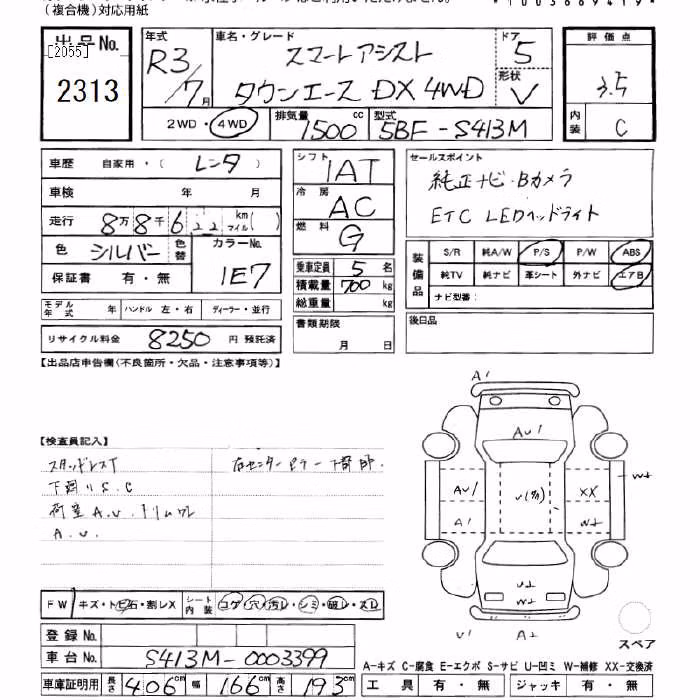 （複合機）対応用紙
*1003669419*
出品No.
[2055]
2313
年式
R3/7月
車名・グレード
スマートアシスト
タウンエース DX 4WD
ドア
5
形状
V
評価点
3.5
内装
C
2WD・4WD
排気量
1500cc
型式
5BF-S413M
車歴 自家用・(レンタ)
車検 年 月
走行 8万8千6 22 km マイル( )
色 シルバー 色替
カラーNo.
1E7
保証書 有・無
モデル年式 年 ハンドル 左・右 ディーラー・並行
リサイクル料金 8250円 預託済
シフト
1AT
冷房
AC
燃料
G
乗車定員 5名
積載量 700kg
総重量 kg
書類期限
月 日
セールスポイント
純正ナビ・Bカメラ
ETC LEDヘッドライト
装備品
S/R 純A/W P/S P/W ABS
純TV 純ナビ 革シート 外ナビ エアB
ナビ型番：
後日品
【出品店申告欄(不良箇所・欠品・注意事項等)】
【検査員記入】
スタッドレスT 右センターピラー下部
下廻りS.C
荷室A.U.トリムワレ
A.U.
A1
AU1
AU1
A1
U(多数)
XX
W+
W+
U+
W+
U1
A+
スペア
FW キズ・トビ石・割レX
シート内装 コゲ・穴・汚レ・シミ・破レ・スレ
登録No.
車台No. S413M-0003399
車庫証明用 長さ 406cm 幅 166cm 高さ 193cm
A-キズ C-腐食 E-エクボ S-サビ U-凹ミ W-補修 XX-交換済
工具 有・無 ジャッキ 有・無